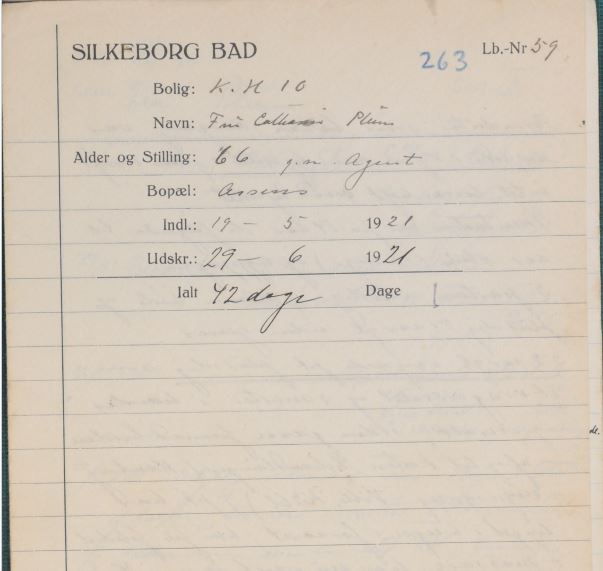 SILKEBORG BAD 263 Lb.-Nr 59
Bolig: K. H 10
Navn: Fru Plum
Alder og Stilling: 66 g. m. Agent
Bopæl: Assens
Indl.: 19 - 5 1921
Udskr.: 29 - 6 1921
Ialt 42 dage Dage